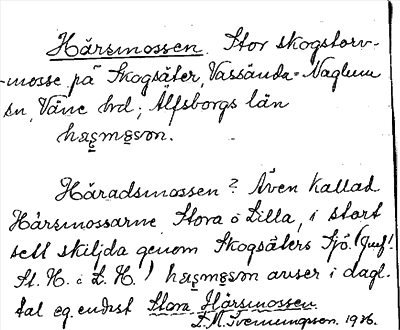 Härsmossen. Stor skogstorv-
-mosse på Skogsäter, Vassända-Naglum
sn, Väne hd; Älfsborgs län
Häradsmossen? Även kallad
Härsmossarne Stora o Lilla, i stort
sett skiljda genom Skogsäters Sjö. (Juf!
St. H. o L. H.) anser i dagl.
tal eg. endast Stora Härsmossen.
1926.